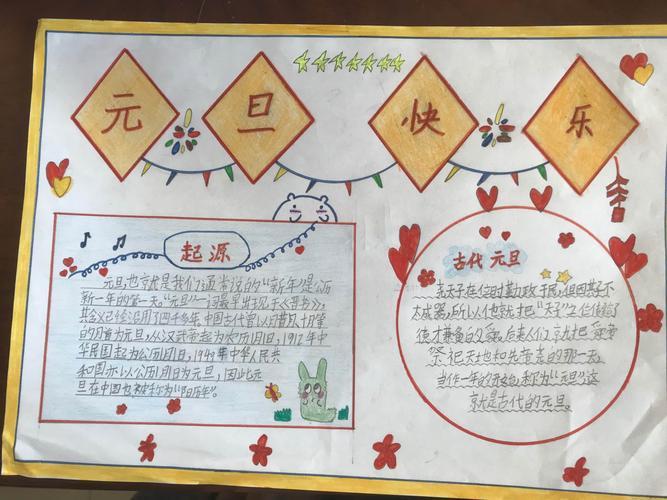 元旦快乐
起源
元旦,也就是我们通常说的“新年”是公历
新一年的第一天。“元旦”一词最早出现于《晋书》,
其含义已经沿用了四千多年。中国古代曾以
的月首为元旦,从汉武帝起为农历1月1日,1912年中
华民国起为公历1月1日,1949年中华人民共
和国亦以公历1月1日为元旦,因此元
旦在中国也被称为“阳历年”。
古代 元旦
尧天子在位时勤政于民,但因其子不
太成器,所以他就把“天子”之位传给了
德才兼备的舜,后来人们就把
祭祀天地和先帝尧的那一天,
当作一年的开始,称为“元旦”这
就是古代的元旦。